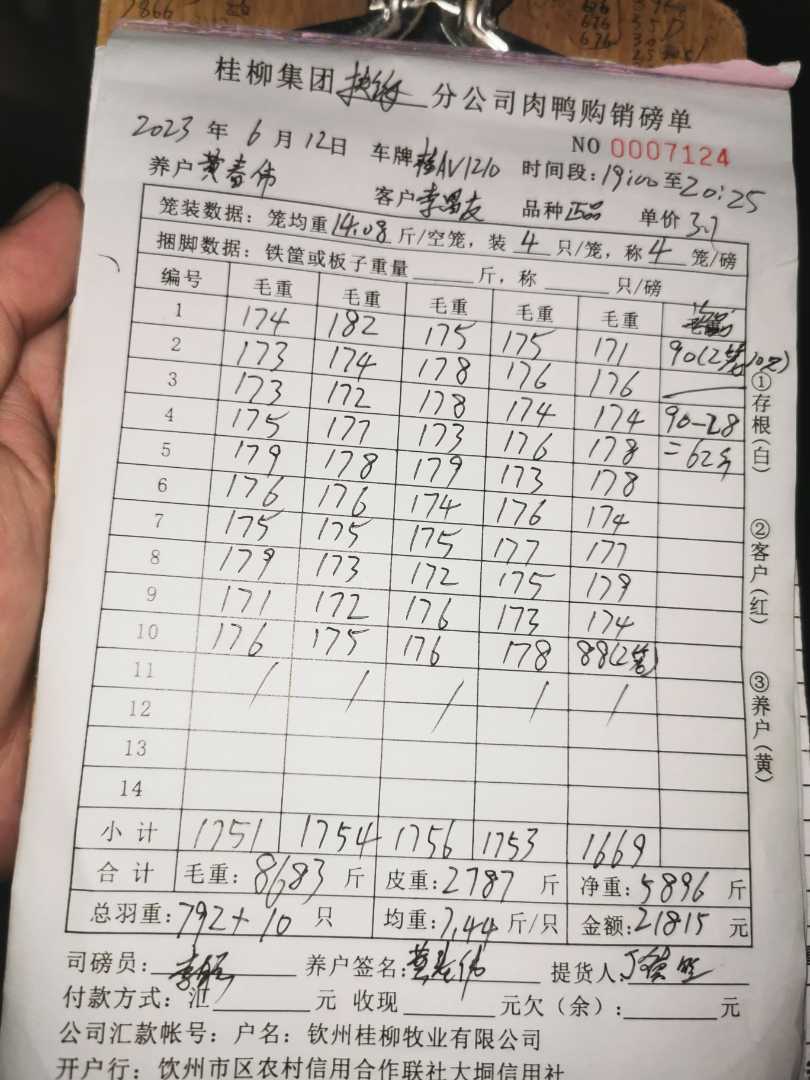 桂柳集团 分公司肉鸭购销磅单
NO 0007124
2023 年 6 月 12 日 车牌 桂AV1210 时间段: 19:00 至 20:25
养户 黄春伟 客户 李昌友 品种 正品 单价 3.7
笼装数据: 笼均重 14.08 斤/空笼, 装 4 只/笼, 称 4 笼/磅
捆脚数据: 铁筐或板子重量 斤, 称 只/磅
编号 毛重 毛重 毛重 毛重 毛重
1 174 182 175 175 171 90(2笼10只)
2 173 174 178 176 176
3 173 172 178 174 174 90-28
4 175 177 173 176 178 =62斤
5 179 178 179 173 178
6 176 176 174 176 174
7 175 175 175 177 177
8 179 173 172 175 179
9 171 172 176 173 174
10 176 175 176 178 88(2笼)
11 / / / / /
12
13
14
小计 1751 1754 1756 1753 1669
合计 毛重: 8683 斤 皮重: 2787 斤 净重: 5896 斤
总羽重: 792+10 只 均重: 7.44 斤/只 金额: 21815 元
司磅员: 养户签名: 黄春伟 提货人:
付款方式: 汇 元 收现 元欠(余): 元
公司汇款帐号: 户名: 钦州桂柳牧业有限公司
开户行: 钦州市区农村信用合作联社大垌信用社
①存根(白) ②客户(红) ③养户(黄)